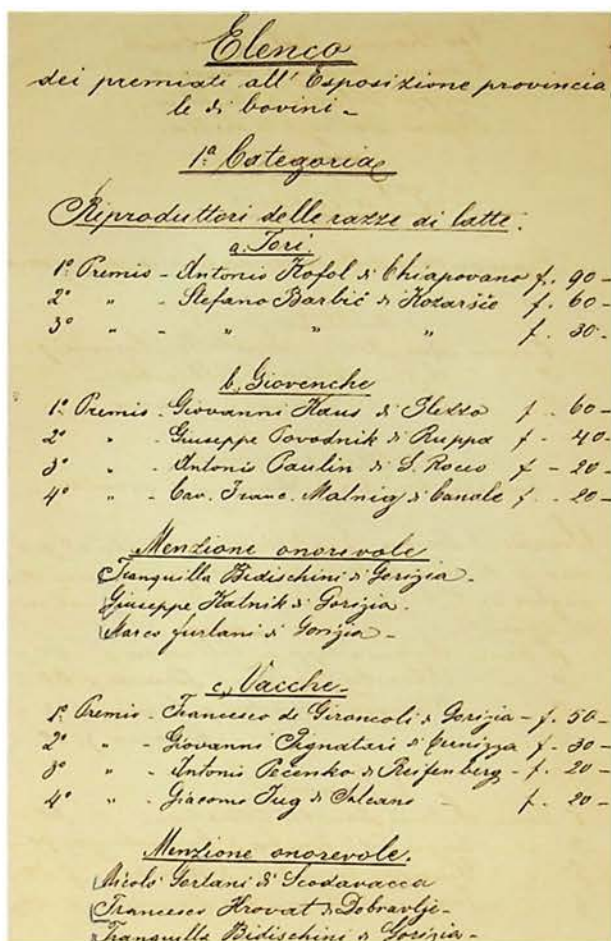 Elenco
dei premiati all' Esposizione provincia
le di bovini -
1ª Categoria
Riproduttori delle razze di latte.
a. Tori.
1º Premio - Antonio Kofol di Chiapovano f. 90 -
2º " - Stefano Barbič di Kozaršče f. 60 -
3º " - " " " f. 30 -
b, Giovenche
1º Premio - Giovanni Kaus di Flezzo f - 60 -
2º " - Giuseppe Povodnik di Ruppa f - 40 -
3º " - Antonio Paulin di S. Rocco f - 20 -
4º " - Cav. Franc. Malnig di Canale f - 20 -
Menzione onorevole
Tranquilla Bidischini di Gorizia -
Giuseppe Katnik di Gorizia -
Marco Furlani di Gorizia -
c, Vacche -
1º Premio - Francesco de Gironcoli di Gorizia - f. 50 -
2º " - Giovanni Pignatari di f - 30 -
3º " - Antonio Pečenko di Reifenberg - f. 20 -
4º " - Giacomo Jug di Salcano - f. 20 -
Menzione onorevole.
Nicolò di Scodavacca
Francesco Hrovat di Dobravlje -
Tranquilla Bidischini di Gorizia -